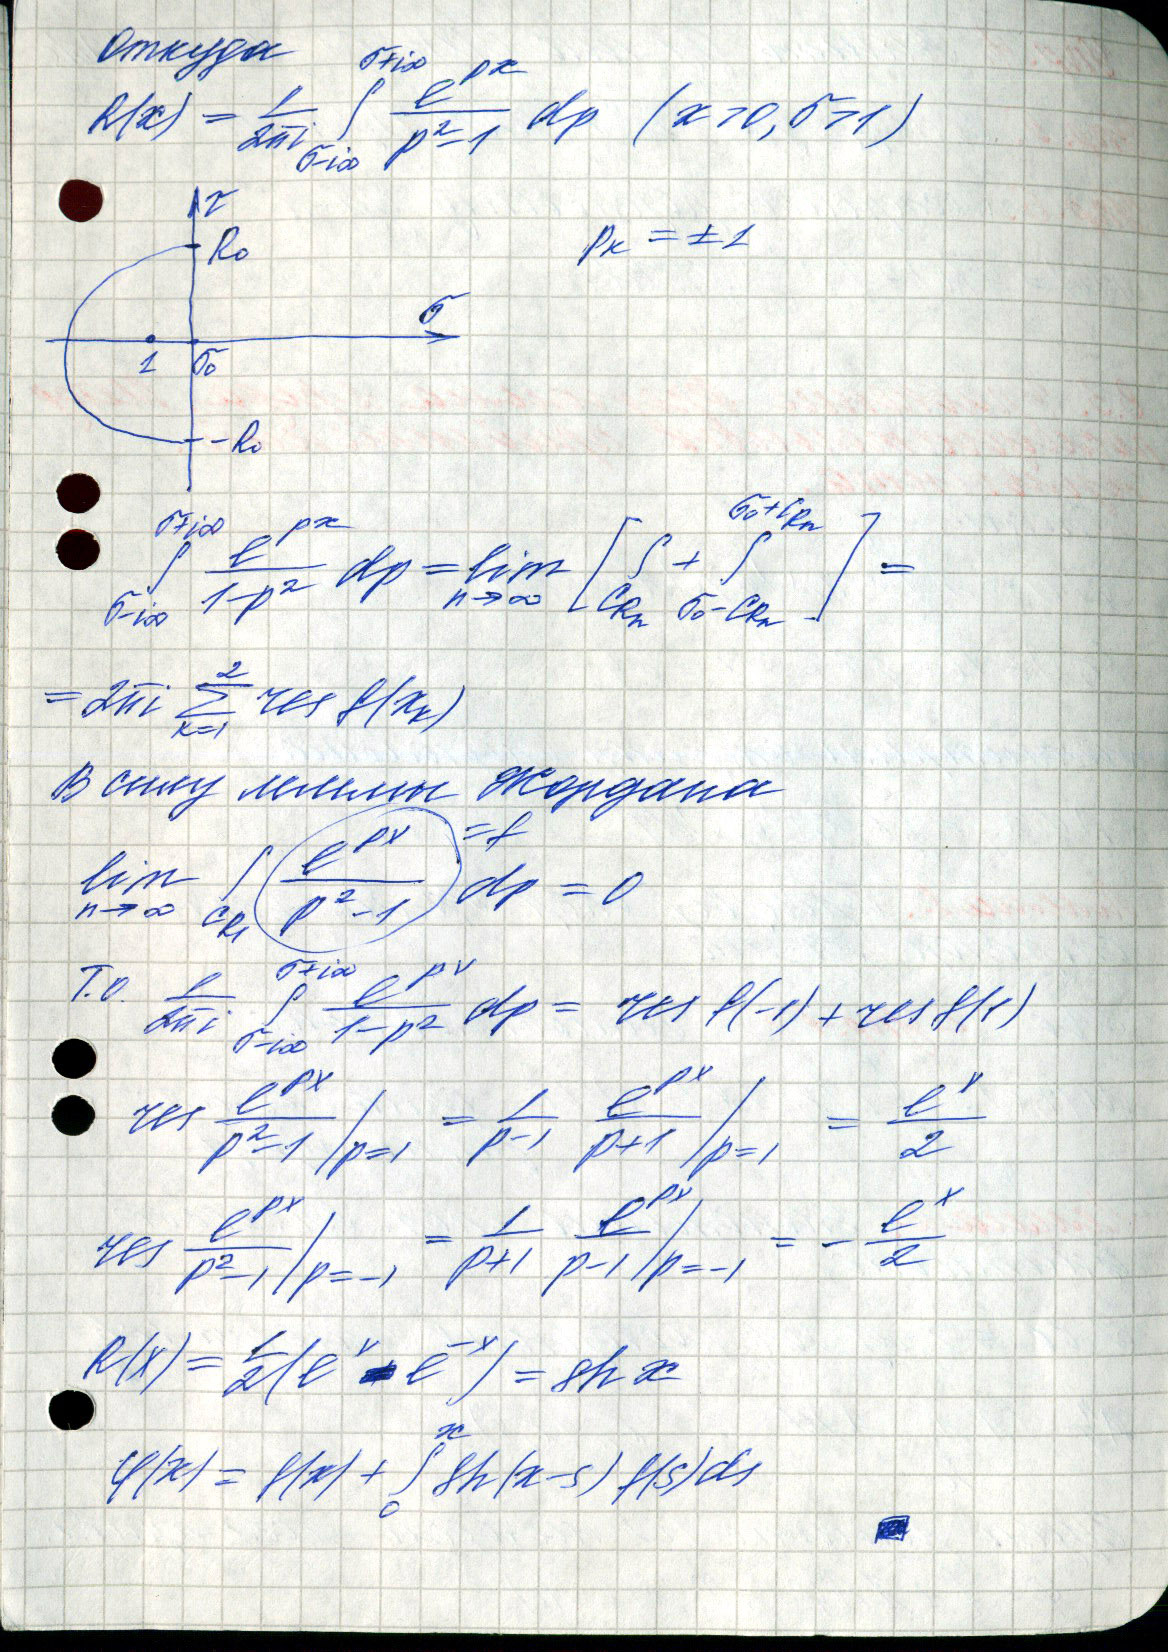 Откуда
R(x) = 1/(2πi) ∫_{σ-i∞}^{σ+i∞} e^{px}/(p²-1) dp (x>0, σ>1)
τ
R₀
p_k = ±1
σ
1 σ₀
-R₀
∫_{σ-i∞}^{σ+i∞} e^{px}/(1-p²) dp = lim_{n→∞} [ ∫_{C_{Rn}} + ∫_{σ₀-C_{Rn}}^{σ₀+i_{Rn}} ] =
= 2πi ∑_{k=1}^{2} res f(x_k)
В силу леммы Жордана
lim_{n→∞} ∫_{C_{R1}} e^{px}/(p²-1) dp = 0 = f
Т.о. 1/(2πi) ∫_{σ-i∞}^{σ+i∞} e^{px}/(1-p²) dp = res f(-1) + res f(1)
res e^{px}/(p²-1) |_{p=1} = 1/(p-1) e^{px}/(p+1) |_{p=1} = e^x/2
res e^{px}/(p²-1) |_{p=-1} = 1/(p+1) e^{px}/(p-1) |_{p=-1} = - e^x/2
R(x) = 1/2 (e^x - e^{-x}) = sh x
φ(x) = f(x) + ∫_0^x sh(x-s) f(s) ds